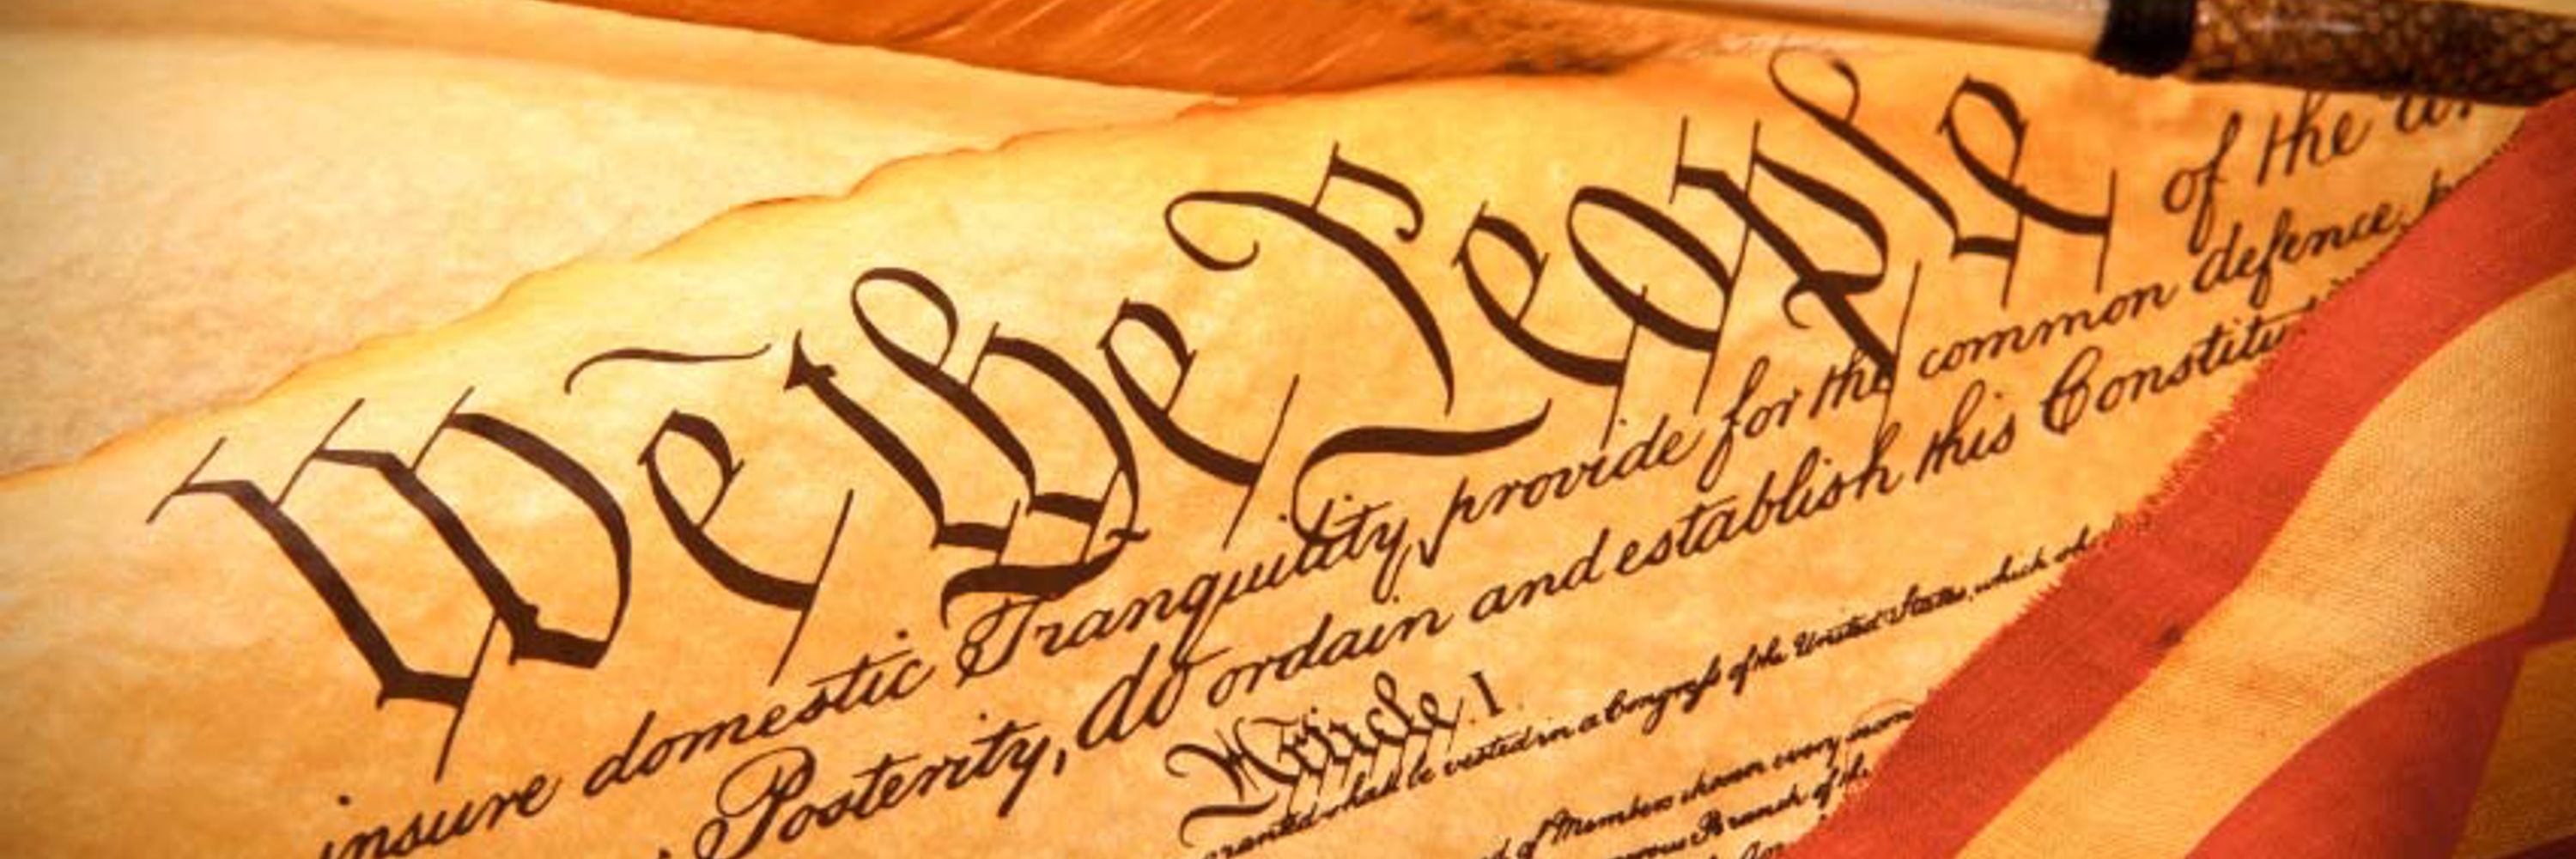 We the People of the
insure domestic Tranquility, provide for the common defence,
Posterity, do ordain and establish this
Article. I.
granted shall be vested in a Congress of the United States, which
of Members chosen every
Branch of the